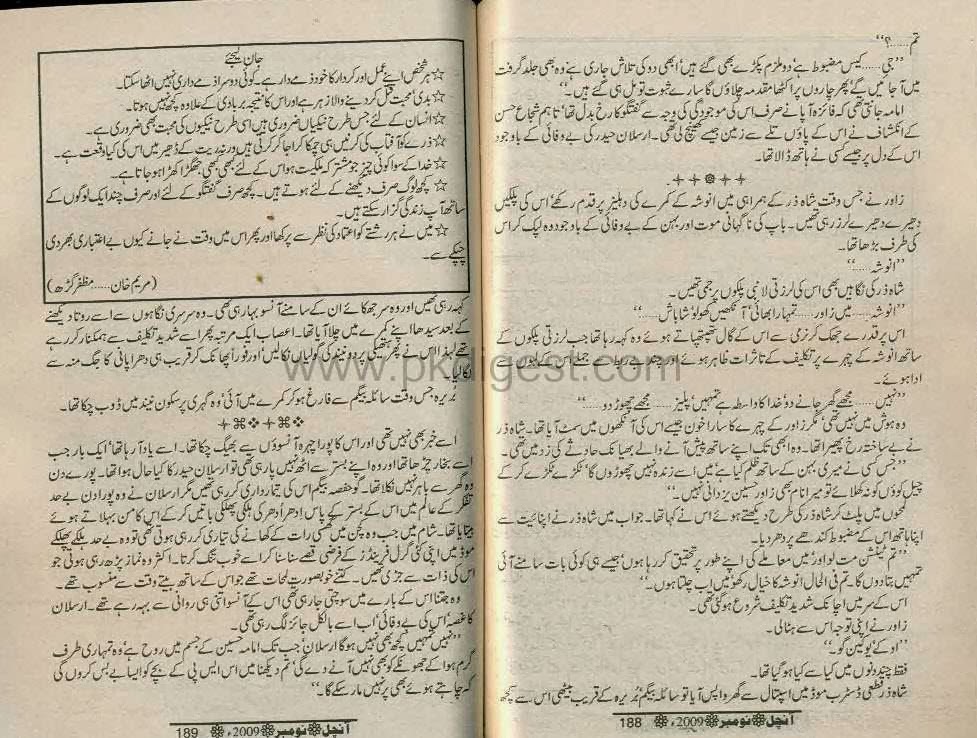 تم.....؟‘‘
’’جی..... کیس مضبوط ہے‘ دو ملزم پکڑے بھی گئے ہیں‘ ابھی دو کی تلاش جاری ہے‘ وہ بھی جلد گرفت
میں آجائیں گے‘ پھر چاروں پر اکٹھا مقدمہ چلاؤں گا سارے ثبوت تو مل ہی گئے ہیں۔‘‘
امامہ جانتی تھی کہ فائزہ آپا نے صرف اس کی موجودگی کی وجہ سے گفتگو کا رخ بدل تھا‘ تاہم شجاع حسن
کے انکشاف نے اس کے پاؤں تلے سے زمین جیسے کھینچ لی تھی۔ ارسلان حیدر کی بے وفائی کے باوجود
اس کے دل پر جیسے کسی نے ہاتھ ڈالا تھا۔
زاور نے جس وقت شاہ ذر کے ہمراہی میں انوشہ کے کمرے کی دہلیز پر قدم رکھے‘ اس کی پلکیں
دھیرے دھیرے لرز رہی تھیں۔ باپ کی ناگہانی موت اور بہن کے بے وفائی کے باوجود وہ لپک کر اس
کی طرف بڑھا تھا۔
’’انوشہ.....‘‘
شاہ ذر کی نگاہیں بھی اس کی لرزتی لانبی پلکوں پر جمی تھیں۔
’’انوشہ..... میں زاور..... تمہارا بھائی‘ آنکھیں کھولو‘ شاباش.....‘‘
اس پر قدرے جھک کر نرمی سے اس کے گال تھپتھپاتے ہوئے وہ کہہ رہا تھا جب لرزتی پلکوں کے
ساتھ انوشہ کے چہرے پر تکلیف کے تاثرات ظاہر ہوئے اور چند بے ربط سے جملے اس کے لبوں سے
ادا ہوئے۔
’’نہیں..... مجھے گھر جانے دو‘ خدا کا واسطہ ہے تمہیں‘ پلیز..... مجھے چھوڑ دو.....‘‘
وہ ہوش میں نہیں تھی‘ مگر زاور کے چہرے کا سارا خون جیسے اس کی آنکھوں میں سمٹ آیا تھا۔ شاہ ذر
نے بے ساختہ رخ پھیرا تھا۔ وہ ابھی تک اپنے ساتھ پیش آنے والے بھیانک حادثے کی زد میں تھی۔
’’جس کسی نے میری بہن کے ساتھ ظلم کیا ہے‘ میں اسے زندہ نہیں چھوڑوں گا‘ ٹکڑے ٹکڑے کر کے
چیل کوؤں کو نہ کھلائے تو میرا نام بھی زاور حسین یزدانی نہیں۔‘‘
لمحوں میں پلٹ کر شاہ ذر کی طرح دیکھتے ہوئے اس نے کہا تھا۔ جواب میں شاہ ذر نے اپنائیت سے
اپنا ہاتھ اس کے مضبوط کندھے پر دھر دیا۔
’’تم ٹینشن مت لو اور‘ میں معاملے کی اپنے طور پر تحقیق کر رہا ہوں‘ جیسے ہی کوئی بات سامنے آئی
تمہیں بتا دوں گا۔ تم فی الحال انوشہ کا خیال رکھو‘ میں اب چلتا ہوں۔‘‘
اس کے سر میں اچانک شدید تکلیف شروع ہو گئی تھی۔
زاور نے اپنی توجہ اس سے ہٹالی۔
’’اوکے‘ یو کین گو۔‘‘
فقط چند دنوں میں کیا سے کیا ہو گیا تھا۔
شاہ ذر قطعی ڈسٹرب موڈ میں اسپتال سے گھر واپس آیا تو سائلہ بیگم‘ بُریرہ کے قریب بیٹھی اس سے کچھ
آنچل نومبر 2009ء 188
جان لیجئے
☆ ہر شخص اپنے عمل اور کردار کا خود ذمے دار ہے۔ کوئی دوسرا ذمے داری نہیں اٹھا سکتا۔
☆ بدی‘ محبت قتل کر دینے والا زہر ہے اور اس کا نتیجہ بربادی کے علاوہ کچھ نہیں ہوتا۔
☆ انسان کے لئے جس طرح نیکیاں ضروری ہیں اسی طرح نیکیوں کی محبت بھی ضروری ہے۔
☆ ذرے کو آفتاب کی کرنیں ہی چمکا کر اجاگر کرتی ہیں ورنہ ریت کے ڈھیر میں اس کی کیا وقعت ہے۔
☆ خدا کے سوا کوئی چیز جو مشترکہ ملکیت ہو اس کے لئے کبھی بھی جھگڑا کھڑا ہو جاتا ہے۔
☆ کچھ لوگ صرف دیکھنے کے لئے ہوتے ہیں۔ کچھ صرف گفتگو کے لئے اور صرف چند ایک لوگوں کے
ساتھ آپ زندگی گزار سکتے ہیں۔
☆ میں نے ہر رشتے کو اعتماد کی نظر سے پرکھا اور پھر اس میں وقت نے جانے کیوں بے اعتباری بھر دی
چپکے سے۔
(مریم خان..... مظفر گڑھ)
کہہ رہی تھیں اور وہ سر جھکائے ان کے سامنے آنسو بہا رہی تھی۔ وہ سرسری نگاہوں سے اسے روتا دیکھنے
کے بعد سیدھا اپنے کمرے میں چلا آیا تھا۔ اعصاب ایک مرتبہ پھر اسے شدید تکلیف سے ہمکنار کر رہے
تھے لہٰذا اس نے پھر ہتھیلی پر دو نیند کی گولیاں نکالیں اور فوراً پھانک کر قریب ہی دھرا پانی کا جگ منہ سے
لگا لیا۔
بُریرہ جس وقت سائلہ بیگم سے فارغ ہو کر کمرے میں آئی‘ وہ گہری پر سکون نیند میں ڈوب چکا تھا۔
اسے خبر بھی نہیں تھی اور اس کا پورا چہرہ آنسوؤں سے بھیگ چکا تھا۔ اسے یاد آ رہا تھا‘ ایک بار جب
اسے بخار چڑھا تھا اور وہ اپنے بستر سے اٹھ نہیں پا رہی تھی تو ارسلان حیدر کا کیا حال ہوا تھا۔ پورے دن
وہ گھر سے باہر نہیں نکلا تھا‘ گو حفصہ بیگم اس کی تیمارداری کر رہی تھیں مگر ارسلان نے وہ پورا دن بے حد
تفکر کے عالم میں اس کے بستر کے پاس ادھر اُدھر کی ہلکی پھلکی باتیں کر کے اس کا من بہلاتے ہوئے
بتایا تھا۔ شام میں جب وہ کچن میں گھسی رات کے کھانے کی تیاری کر رہی ہوتی تھی‘ تو وہ بے حد ہلکے پھلکے
موڈ میں اپنی کئی گرل فرینڈز کے فرضی قصے سنا سنا کر اسے خوب تنگ کرتا۔ اکثر وہ نماز پڑھ رہی ہوتی جو
اس کی ذات سے جڑی تھیں۔ کتنے خوبصورت لمحات تھے جو اس کے ساتھ بیتے وقت سے منسوب تھے۔
وہ جتنا اس کے بارے میں سوچتی جا رہی تھی اس کے آنسو اتنی ہی روانی سے بہہ رہے تھے۔ ارسلان
کا غصہ‘ اس کی بے وفائی‘ اب اسے بالکل جائز لگ رہی تھی۔
’’نہیں تمہیں کچھ بھی نہیں ہوگا ارسلان‘ جب تک امامہ حسین کے جسم میں روح ہے وہ تمہاری طرف
گرم ہوا کے جھونکے کو بھی نہیں آنے دے گی‘ تم دیکھنا میں اس ایس پی کے بچے کو ایسا بے بس کروں گی
کہ چاہتے ہوئے بھی پر نہیں مار سکے گا۔‘‘
آنچل نومبر 2009ء 189
www.pkdigest.com